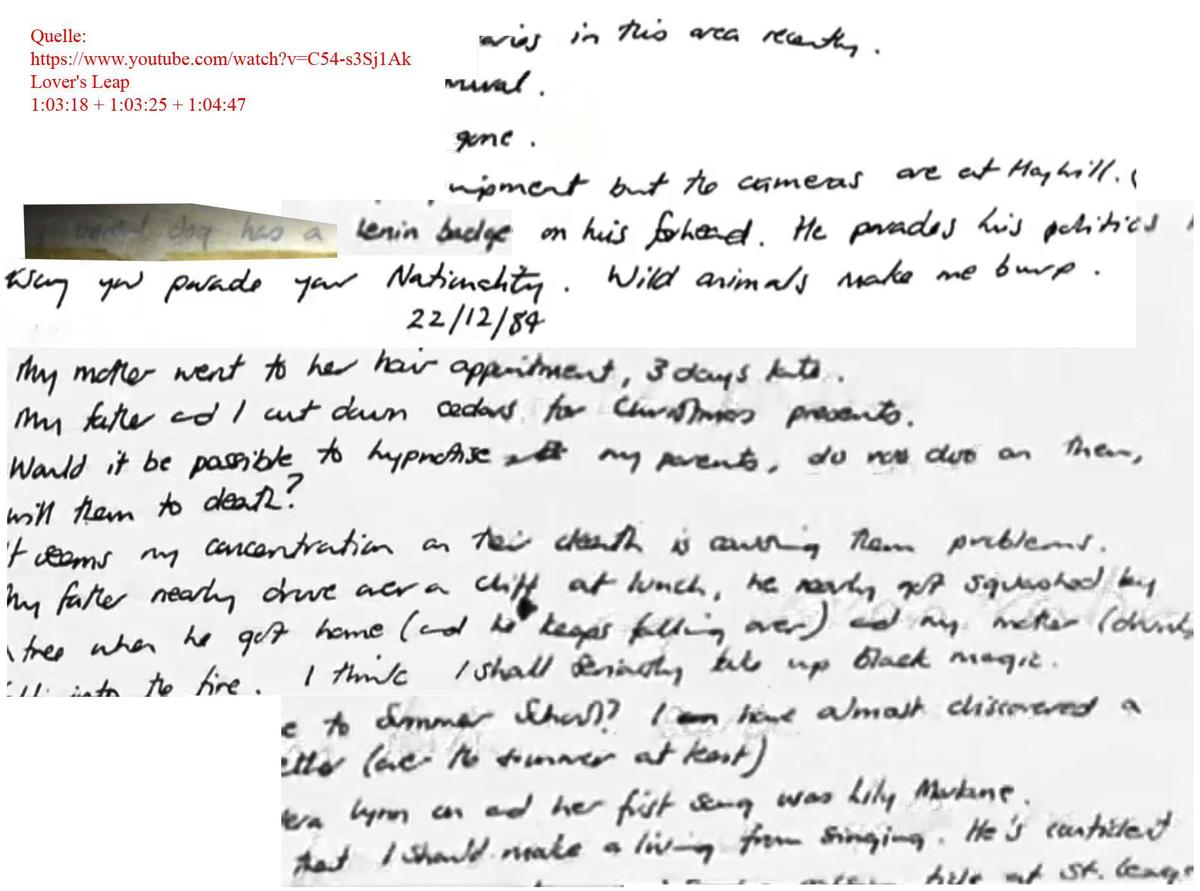 Quelle:
https://www.youtube.com/watch?v=C54-s3Sj1Ak
Lover's Leap
1:03:18 + 1:03:25 + 1:04:47
in this area recently.
gone.
but the cameras are at Hayhill.
dog has a Lenin badge on his forhead. He parades his politics
you parade your Nationality. Wild animals make me burp.
22/12/84
My mother went to her hair appointment, 3 days late.
My father and I cut down cedars for Christmas presents.
Would it be possible to hypnotise my parents, do on them,
will them to death?
It seems my concentration on their death is causing them problems.
My father nearly drove over a cliff at lunch, he nearly got squashed by
tree when he got home (and he keeps falling over) and my mother
into the fire. I think I shall seriously take up black magic.
to Summer School? I have almost discovered a
(over the summer at least)
Lynn on and her first song was Lily Marlane.
that I should make a living from singing. He's confident
at St.